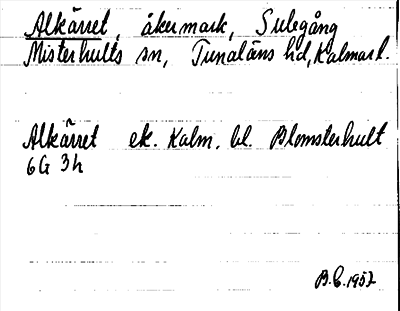 Alkärret, åkermark, Sulegång
Misterhults sn, Tunaläns hd, Kalmar l.
Alkärret ek. Kalm. bl. Blomsterhult
6G 3h
B.E. 1952